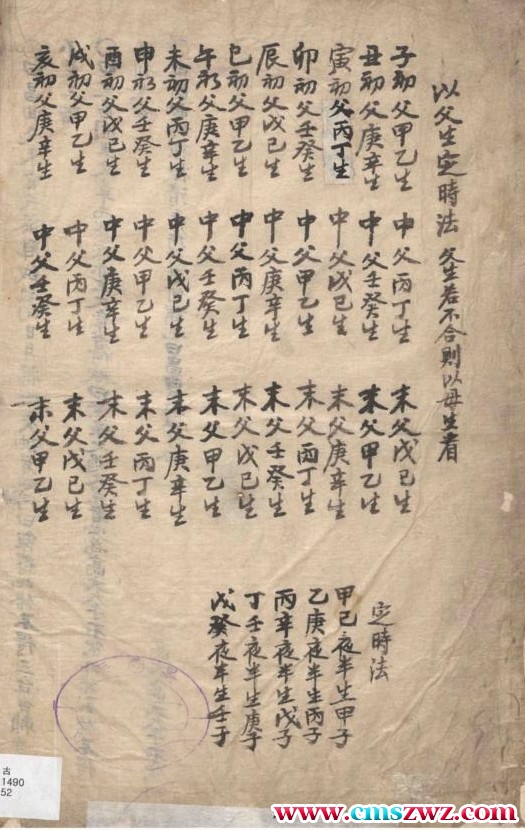 以父生定時法 父生若不合則以母生看
子初父甲乙生 中父丙丁生 末父戊己生
丑初父庚辛生 中父壬癸生 末父甲乙生
寅初父丙丁生 中父戊己生 末父庚辛生
卯初父壬癸生 中父甲乙生 末父丙丁生
辰初父戊己生 中父庚辛生 末父壬癸生
巳初父甲乙生 中父丙丁生 末父戊己生
午初父庚辛生 中父壬癸生 末父甲乙生
未初父丙丁生 中父戊己生 末父庚辛生
申初父壬癸生 中父甲乙生 末父丙丁生
酉初父戊己生 中父庚辛生 末父壬癸生
戌初父甲乙生 中父丙丁生 末父戊己生
亥初父庚辛生 中父壬癸生 末父甲乙生
定時法
甲己夜半生甲子
乙庚夜半生丙子
丙辛夜半生戊子
丁壬夜半生庚子
戊癸夜半生壬子
古
1490
52
www.cmszwz.com